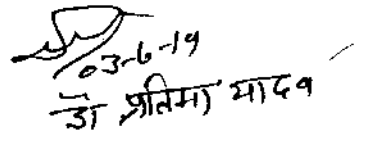 03-6-19
डॉ प्रतिमा यादव